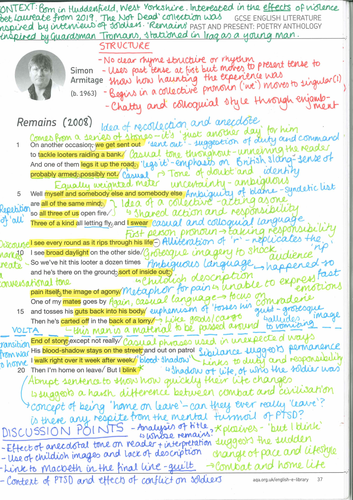 CONTEXT: Born in Huddersfield, West Yorkshire. Interested in the effects of violence
Poet laureate from 2019. 'The Not Dead' collection was
inspired by interviews of soldiers. 'Remains'
inspired by Guardsman Tromans, stationed in Iraq as a young man.
GCSE ENGLISH LITERATURE
PAST AND PRESENT: POETRY ANTHOLOGY
STRUCTURE
- No clear rhyme structure or rhythm
- Uses past tense at first but moves to present tense to
show how haunting the experience was
- Begins in a collective pronoun ('we') moves to singular (I)
- Chatty and colloquial style through enjambment
Simon
Armitage
(b. 1963)
Remains (2008)
Idea of recollection and anecdote
Comes from a series of stories - it's 'just another day' for him
1 On another occasion, we get sent out
'sent out' - suggestion of duty and command
to tackle looters raiding a bank.
Casual tone throughout - unnerving the reader
And one of them legs it up the road,
'legs it' - emphasis on British slang - sense of identity
probably armed, possibly not.
Casual
Tone of doubt and uncertainty - ambiguous
Equally weighted metre
5 Well myself and somebody else and somebody else
Ambiguity of blame - syndetic list
are all of the same mind,
Idea of a collective - acting as one
Repetition of 'all'
so all three of us open fire.
Shared action and responsibility
Three of a kind all letting fly, and I swear
casual and colloquial language
First person pronoun -> taking responsibility
I see every round as it rips through his life –
Alliteration of 'r' - replicates the
10 I see broad daylight on the other side.
imagery to shock audience
So we've hit this looter a dozen times
Ambiguous language -> happened so fast
and he's there on the ground, sort of inside out,
conversational tone
Childish description
pain itself, the image of agony.
Metaphor for pain - unable to express emotions
One of my mates goes by
Again, casual language -> focus on comradery
15 and tosses his guts back into his body.
euphemism of 'tosses his guts' - grotesque image
alludes to vomiting
Then he's carted off in the back of a lorry.
Like goods/cargo
this man is a material to be passed around
VOLTA
Transition from war to home
End of story, except not really.
Casual phrases used in unexpected ways
His blood-shadow stays on the street, and out on patrol
Sibilance suggests permanence
I walk right over it week after week.
'blood shadow' - Links to guilt and responsibility
20 Then I'm home on leave. But I blink
Shadow of life, of who the soldier was
Abrupt sentence to show how quickly their life changes
suggests a harsh difference between combat and civilisation
-> concept of being 'home on leave' - can they ever really 'leave'?
is there any respite from the mental turmoil of PTSD?
DISCUSSION POINTS
- Analysis of title - whose remains?
- Effect of anecdotal tone on reader + interpretation
- Use of childish images and lack of description
- Link to Macbeth in the final line - guilt
- Context of PTSD and effects of conflict on soldiers
* plosives - 'but I blink'
suggests the sudden
change of pace and lifestyle
Combat and home life
aqa.org.uk/english-e-library 37